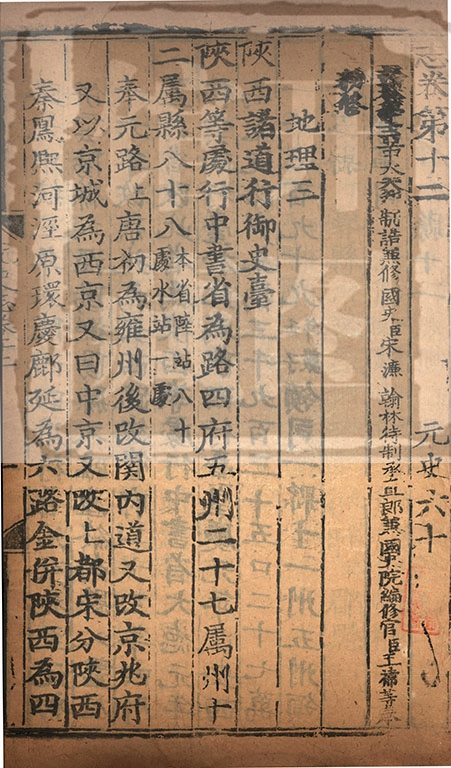 志卷第十二 元史六十
知制誥兼修國史臣宋濂 翰林待制承直郎兼國史院編修官臣王禕等奉
地理三
陝西諸道行御史臺
陝西等處行中書省為路四府五州二十七属州十
二属縣八十八 本省陸站八十
處水站一處
奉元路上唐初為雍州後改関内道又改京兆府
又以京城為西京又曰中京又改上都宋分陝西
秦鳳熙河涇原環慶鄜延為六路金併陝西為四